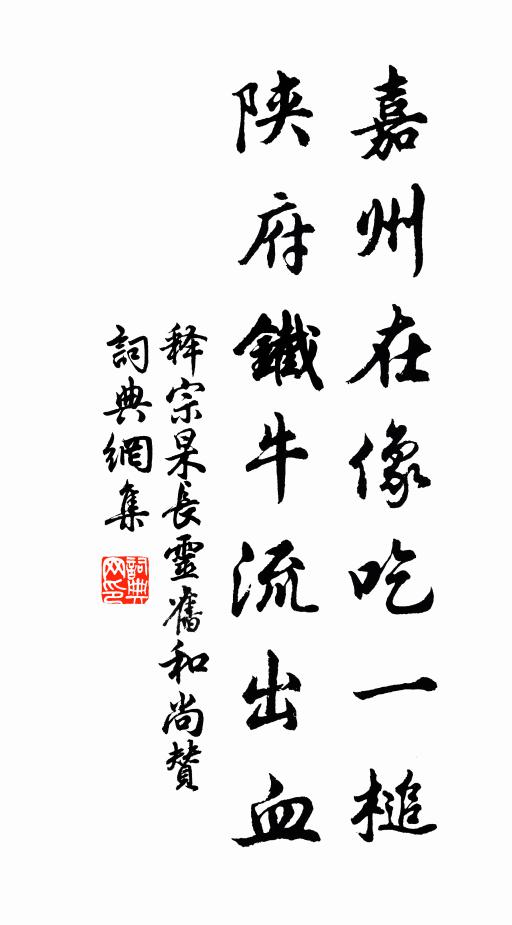 嘉州在像吃一槌
陝府鐵牛流出血
释宗杲長靈舊和尚贊
詞典網集
詞典網印